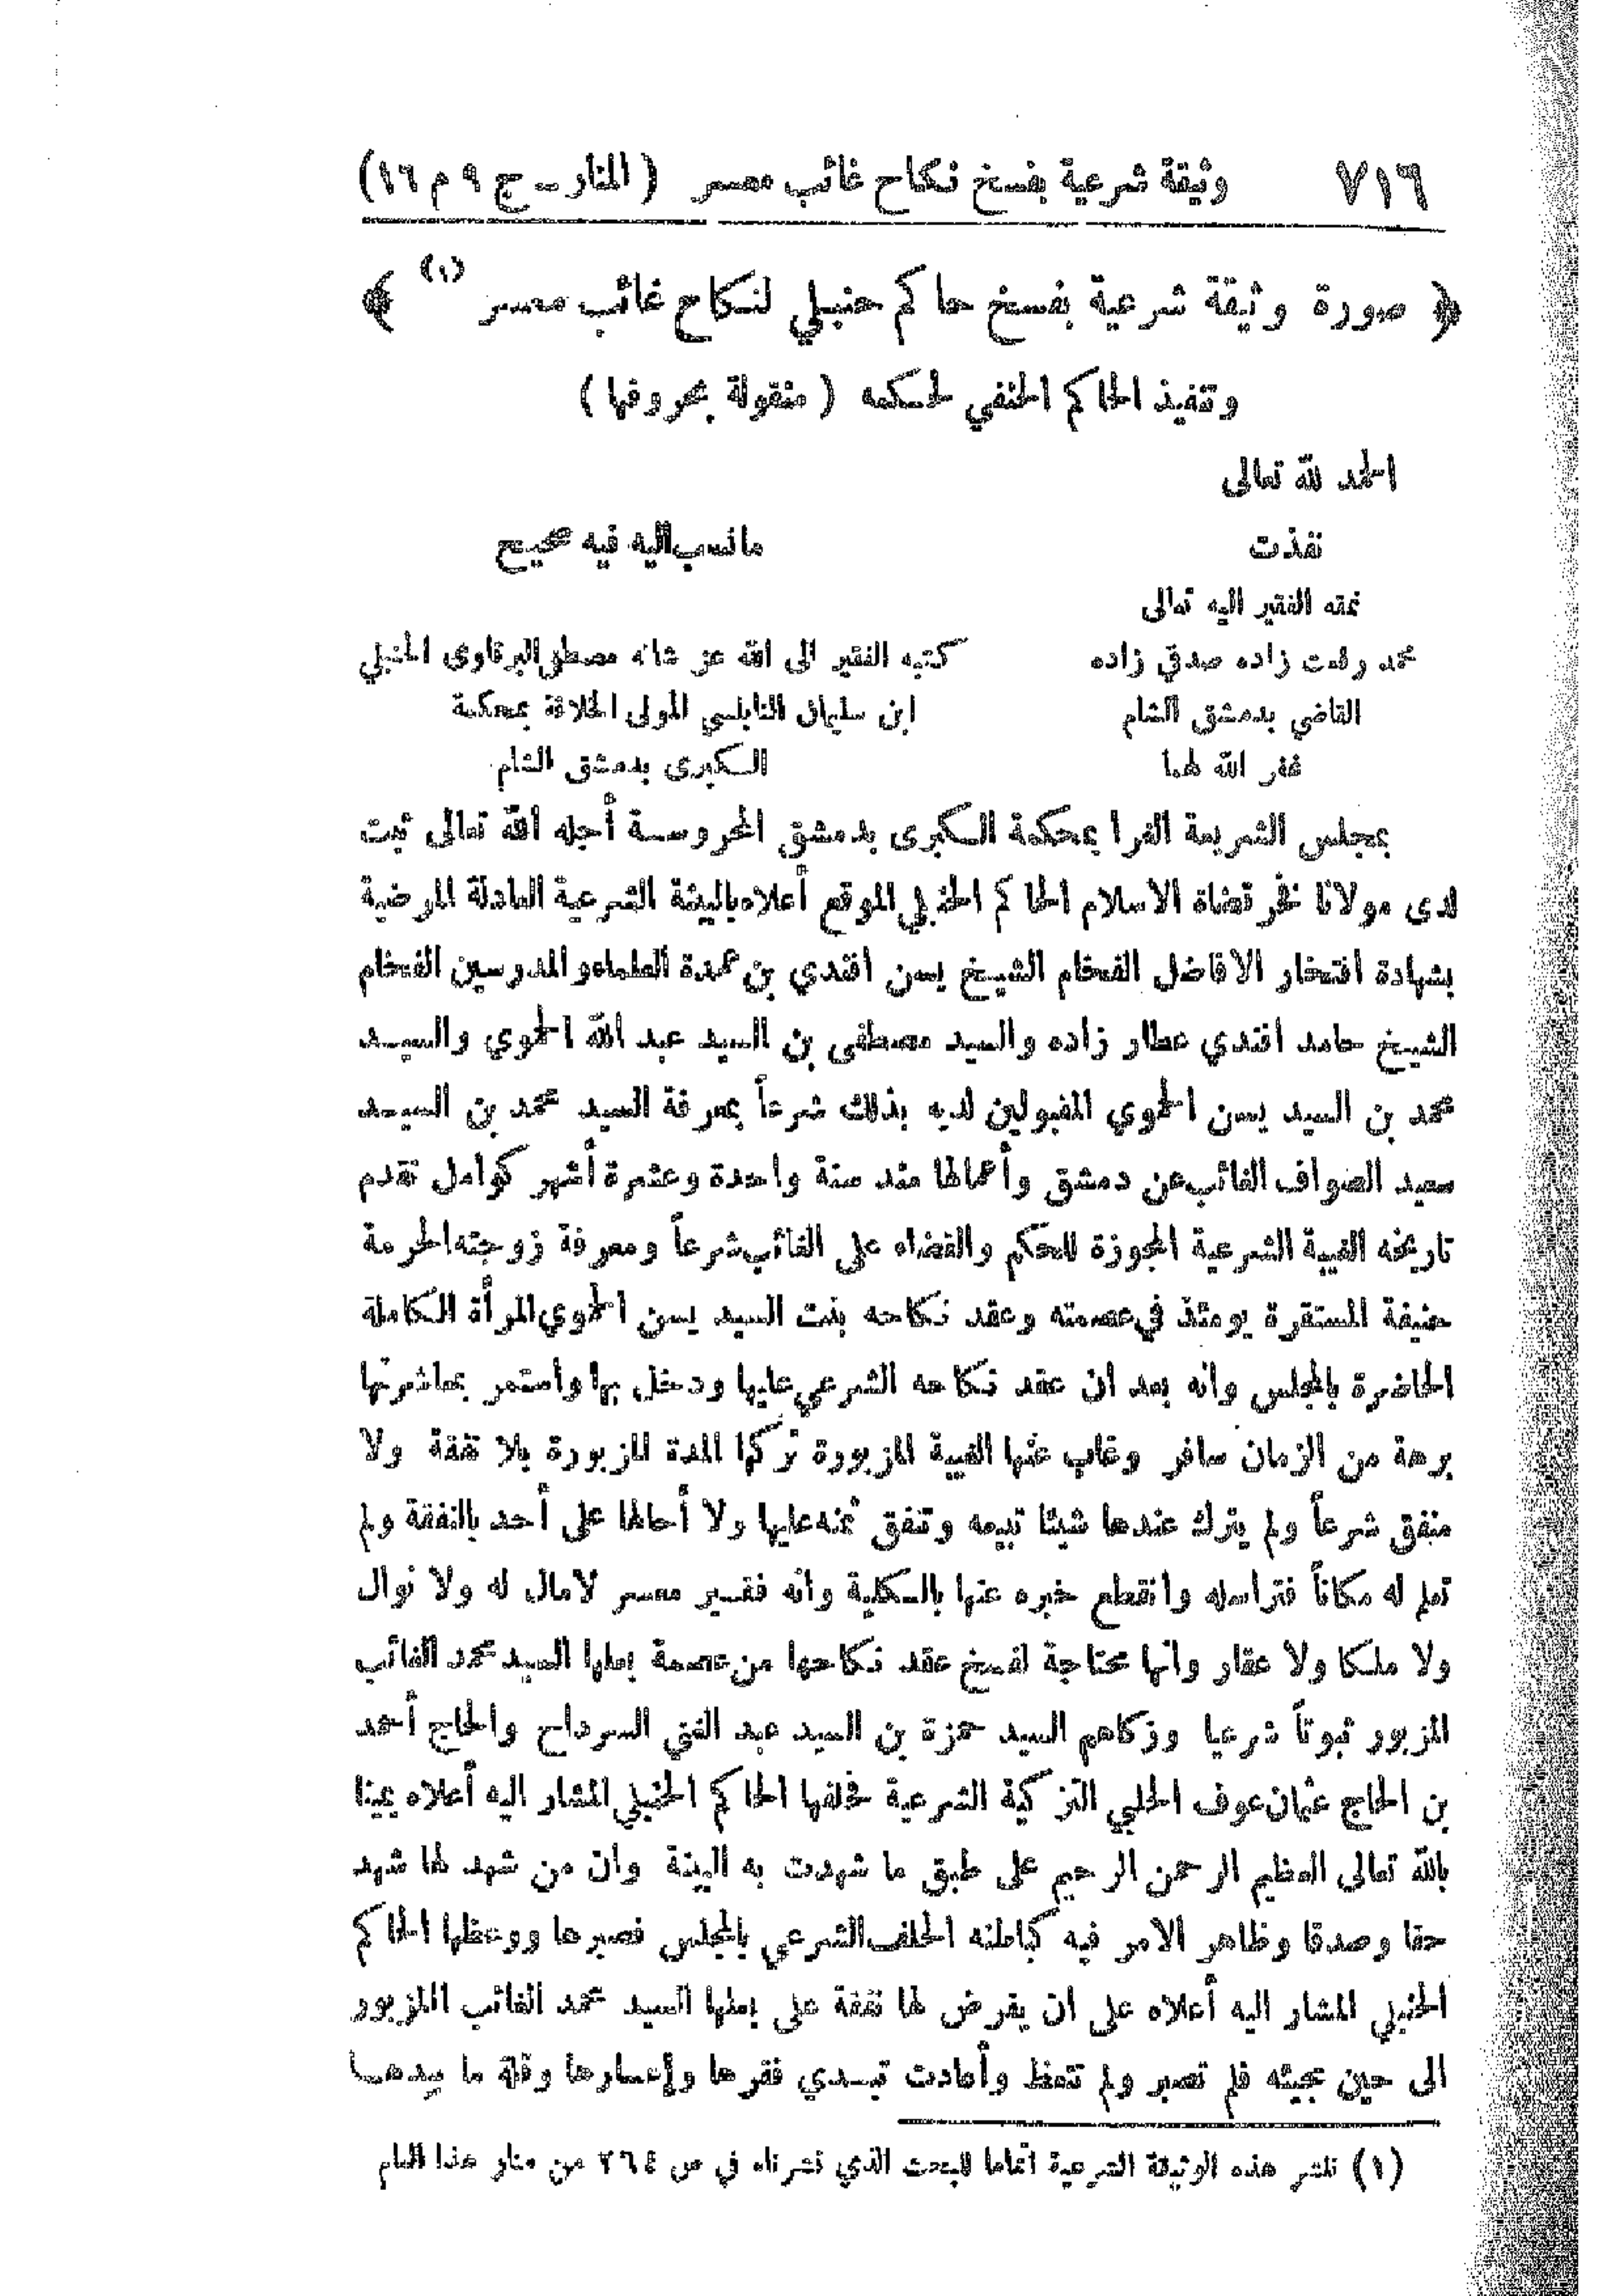 ٧١٦ وثيقة شرعية بفسخ نكاح غائب معسر (المنار ـ ج ٩ م ١٦)
﴿ صورة وثيقة شرعية بفسخ حاكم حنبلي لنكاح غائب معسر (١) ﴾
وتنفيذ الحاكم الحنفي لحكمه ( منقولة بحروفها )
الحمد لله تعالى
نفذت
نمقه الفقير اليه تعالى
محمد رفعت زاده صدقي زاده
القاضي بدمشق الشام
غفر الله لهما
مانسب اليه فيه صحيح
كتبه الفقير الى الله عز شانه مصطفى البرقاوى الحنبلي
ابن سليمان النابلسي المولى الخلافة بمحكمة
الكبرى بدمشق الشام
بمجلس الشريعة الغرا بمحكمة الكبرى بدمشق المحروسة أجله الله تعالى ثبت
لدى مولانا فخر قضاة الاسلام الحاكم الحنبلي الموقع أعلاه بالبينة الشرعية العادلة المرضية
بشهادة افتخار الافاضل الفخام الشيخ يسن افندي بن عمدة العلماء والمدرسين الفخام
الشيخ حامد افندي عطار زاده والسيد مصطفى بن السيد عبد الله الحموي والسيد
محمد بن السيد يسن الحموي المقبولين لديه بذلك شرعاً بمعرفة السيد محمد بن السيد
سعيد الصواف الغائب عن دمشق وأعمالها منذ سنة واحدة وعشرة أشهر كوامل تقدم
تاريخه الغيبة الشرعية المجوزة للحكم والقضاء على الغائب شرعاً ومعرفة زوجته الحرمة
حنيفة المستقرة يومئذ في عصمته وعقد نكاحه بنت السيد يسن الحموي المرأة الكاملة
الحاضرة بالمجلس وانه بعد ان عقد نكاحه الشرعي عليها ودخل بها واستمر بمعاشرتها
برهة من الزمان سافر وغاب عنها الغيبة المزبورة تركها المدة المزبورة بلا نفقة ولا
منفق شرعاً ولم يترك عندها شيئا تبيعه وتنفق ثمنه عليها ولا أحالها على أحد بالنفقة ولم
تعلم له مكاناً فتراسله وانقطع خبره عنها بالكلية وانه فقير معسر لامال له ولا نوال
ولا ملكا ولا عقار وانها محتاجة لفسخ عقد نكاحها من عصمة بعلها السيد محمد الغائب
المزبور ثبوتاً شرعيا وزكاهم السيد حمزة بن السيد عبد الغني السرداح والحاج أحمد
بن الحاج عثمان عوف الحلبي التزكية الشرعية فحلفها الحاكم الحنبلي المشار اليه أعلاه يمينا
بالله تعالى العظيم الرحمن الرحيم على طبق ما شهدت به البينة وان من شهد لها شهد
حقا وصدقا وظاهر الامر فيه كباطنه الحلف الشرعي بالمجلس فصبرها ووعظها الحاكم
الحنبلي المشار اليه أعلاه على ان يفرض لها نفقة على بعلها السيد محمد الغائب المزبور
الى حين مجيئه فلم تصبر ولم تتعظ وأعادت تبدي فقرها وإعسارها وقلة ما بيدها
(١) ننشر هذه الوثيقة الشرعية اتماما للبحث الذي نشرناه في ص ٢٦٤ من منار هذا العام